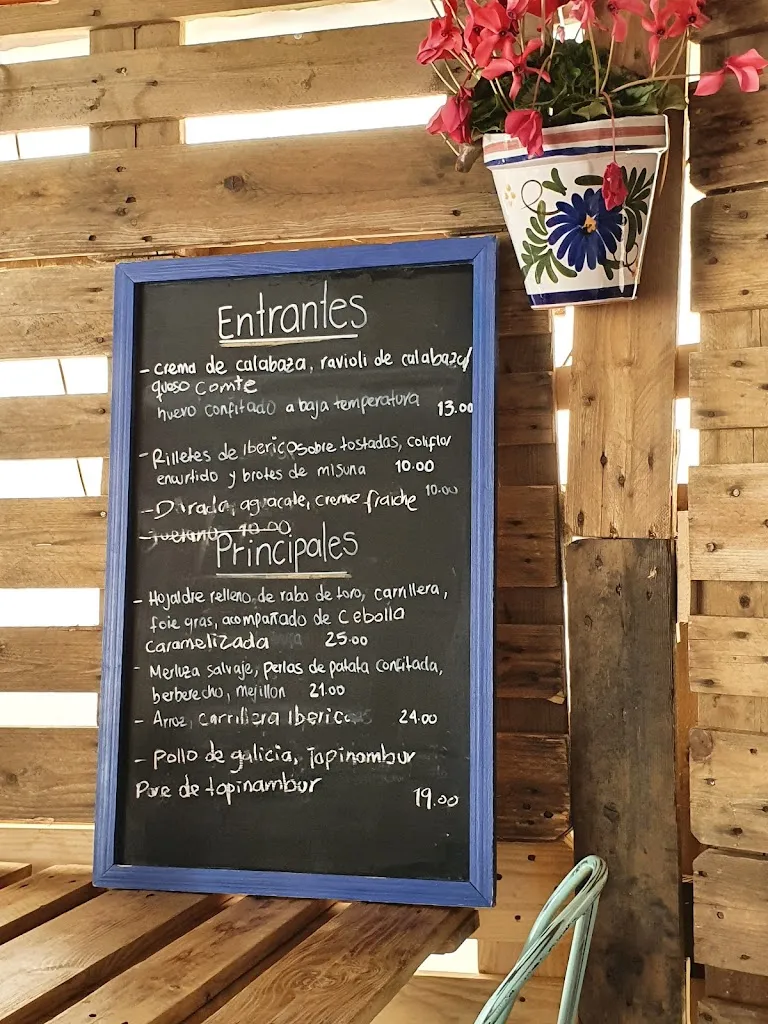 Entrantes
- crema de calabaza, ravioli de calabaza/
queso Comte
huevo confitado a baja temperatura 13.00
- Rilletes de Iberico sobre tostadas, coliflor
encurtido y brotes de misuna 10.00
- Dorada, aguacate, creme fraiche 10.00
10.00
Principales
- Hojaldre relleno de rabo de toro, carrillera,
foie gras, acompañado de Cebolla
caramelizada 25.00
- Merluza salvaje, perlas de patata confitada,
berberecho, mejillon 21.00
- Arroz, carrillera Iberico 24.00
- Pollo de galicia, Topinambur
Pure de topinambur
19.00